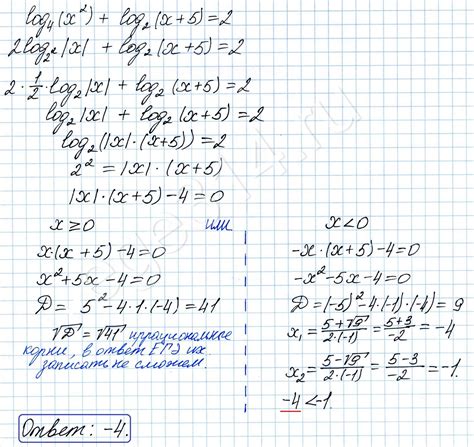 log₄(x²) + log₂(x+5) = 2
2log₂²|x| + log₂(x+5) = 2
2·1/2·log₂|x| + log₂(x+5) = 2
log₂|x| + log₂(x+5) = 2
log₂(|x|·(x+5)) = 2
2² = |x|·(x+5)
|x|·(x+5)-4=0
x≥0 или x<0
x(x+5)-4=0
x²+5x-4=0
D = 5²-4·1·(-4)=41
√D = √41 иррациональные
корни, в ответ ЕГЭ их
записать не сможем.
-x·(x+5)-4=0
-x²-5x-4=0
D=(-5)²-4·(-1)·(-4)=9
x₁=(5+√9)/(2·(-1))=(5+3)/(-2)=-4
x₂=(5-√9)/(2·(-1))=(5-3)/(-2)=-1.
-4<-1.
Ответ: -4.